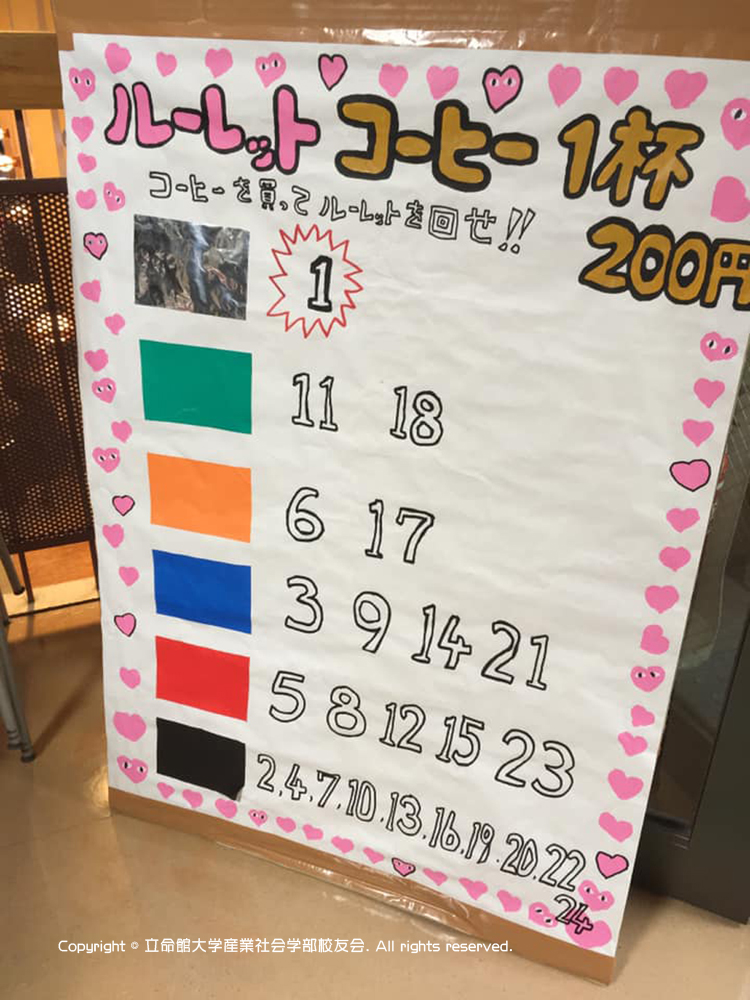 ルーレット コーヒー 1杯
コーヒーを買ってルーレットを回せ!!
200円
1
11 18
6 17
3 9 14 21
5 8 12 15 23
2,4,7,10,13,16,19,20,22
24
Copyright © 立命館大学産業社会学部校友会. All rights reserved.